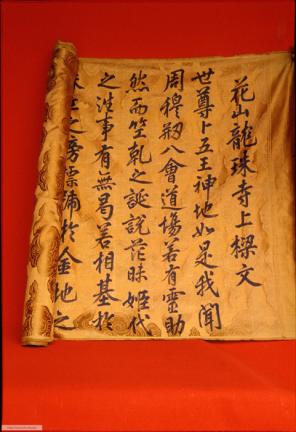 花山龍珠寺上樑文
世尊卜五王神地如是我聞
周穆刱八會道場若有靈助
然而竺乾之誕說茫昧姬代
之涉事有無曷若相基於
之旁標沛於金地之